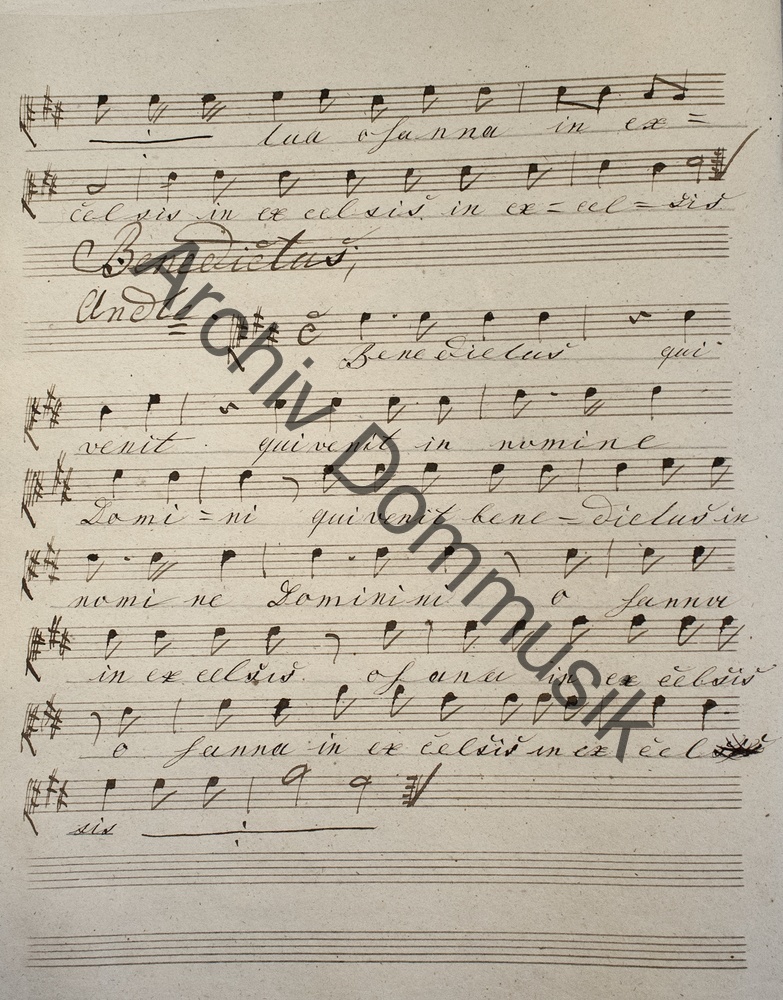 tua osanna in ex=
čel sis in ex celsiš. in ex=cel=siš
Benedictuš;
Andte
Benedictuš qui
venit qui venit in nomine
Domi=ni qui venit bene=dictuš in
nomi ne Dominini o sanna
in ex celšiš. osana in ex čelsiš
o sanna in ex čelšiš in ex čel
sis
Archiv Dommusik